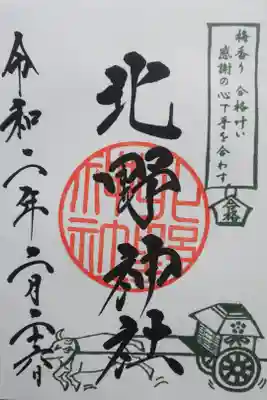 梅香り 合格叶い
感謝の心で手を合わす
合格
北野神社
北野神社
令和二年二月